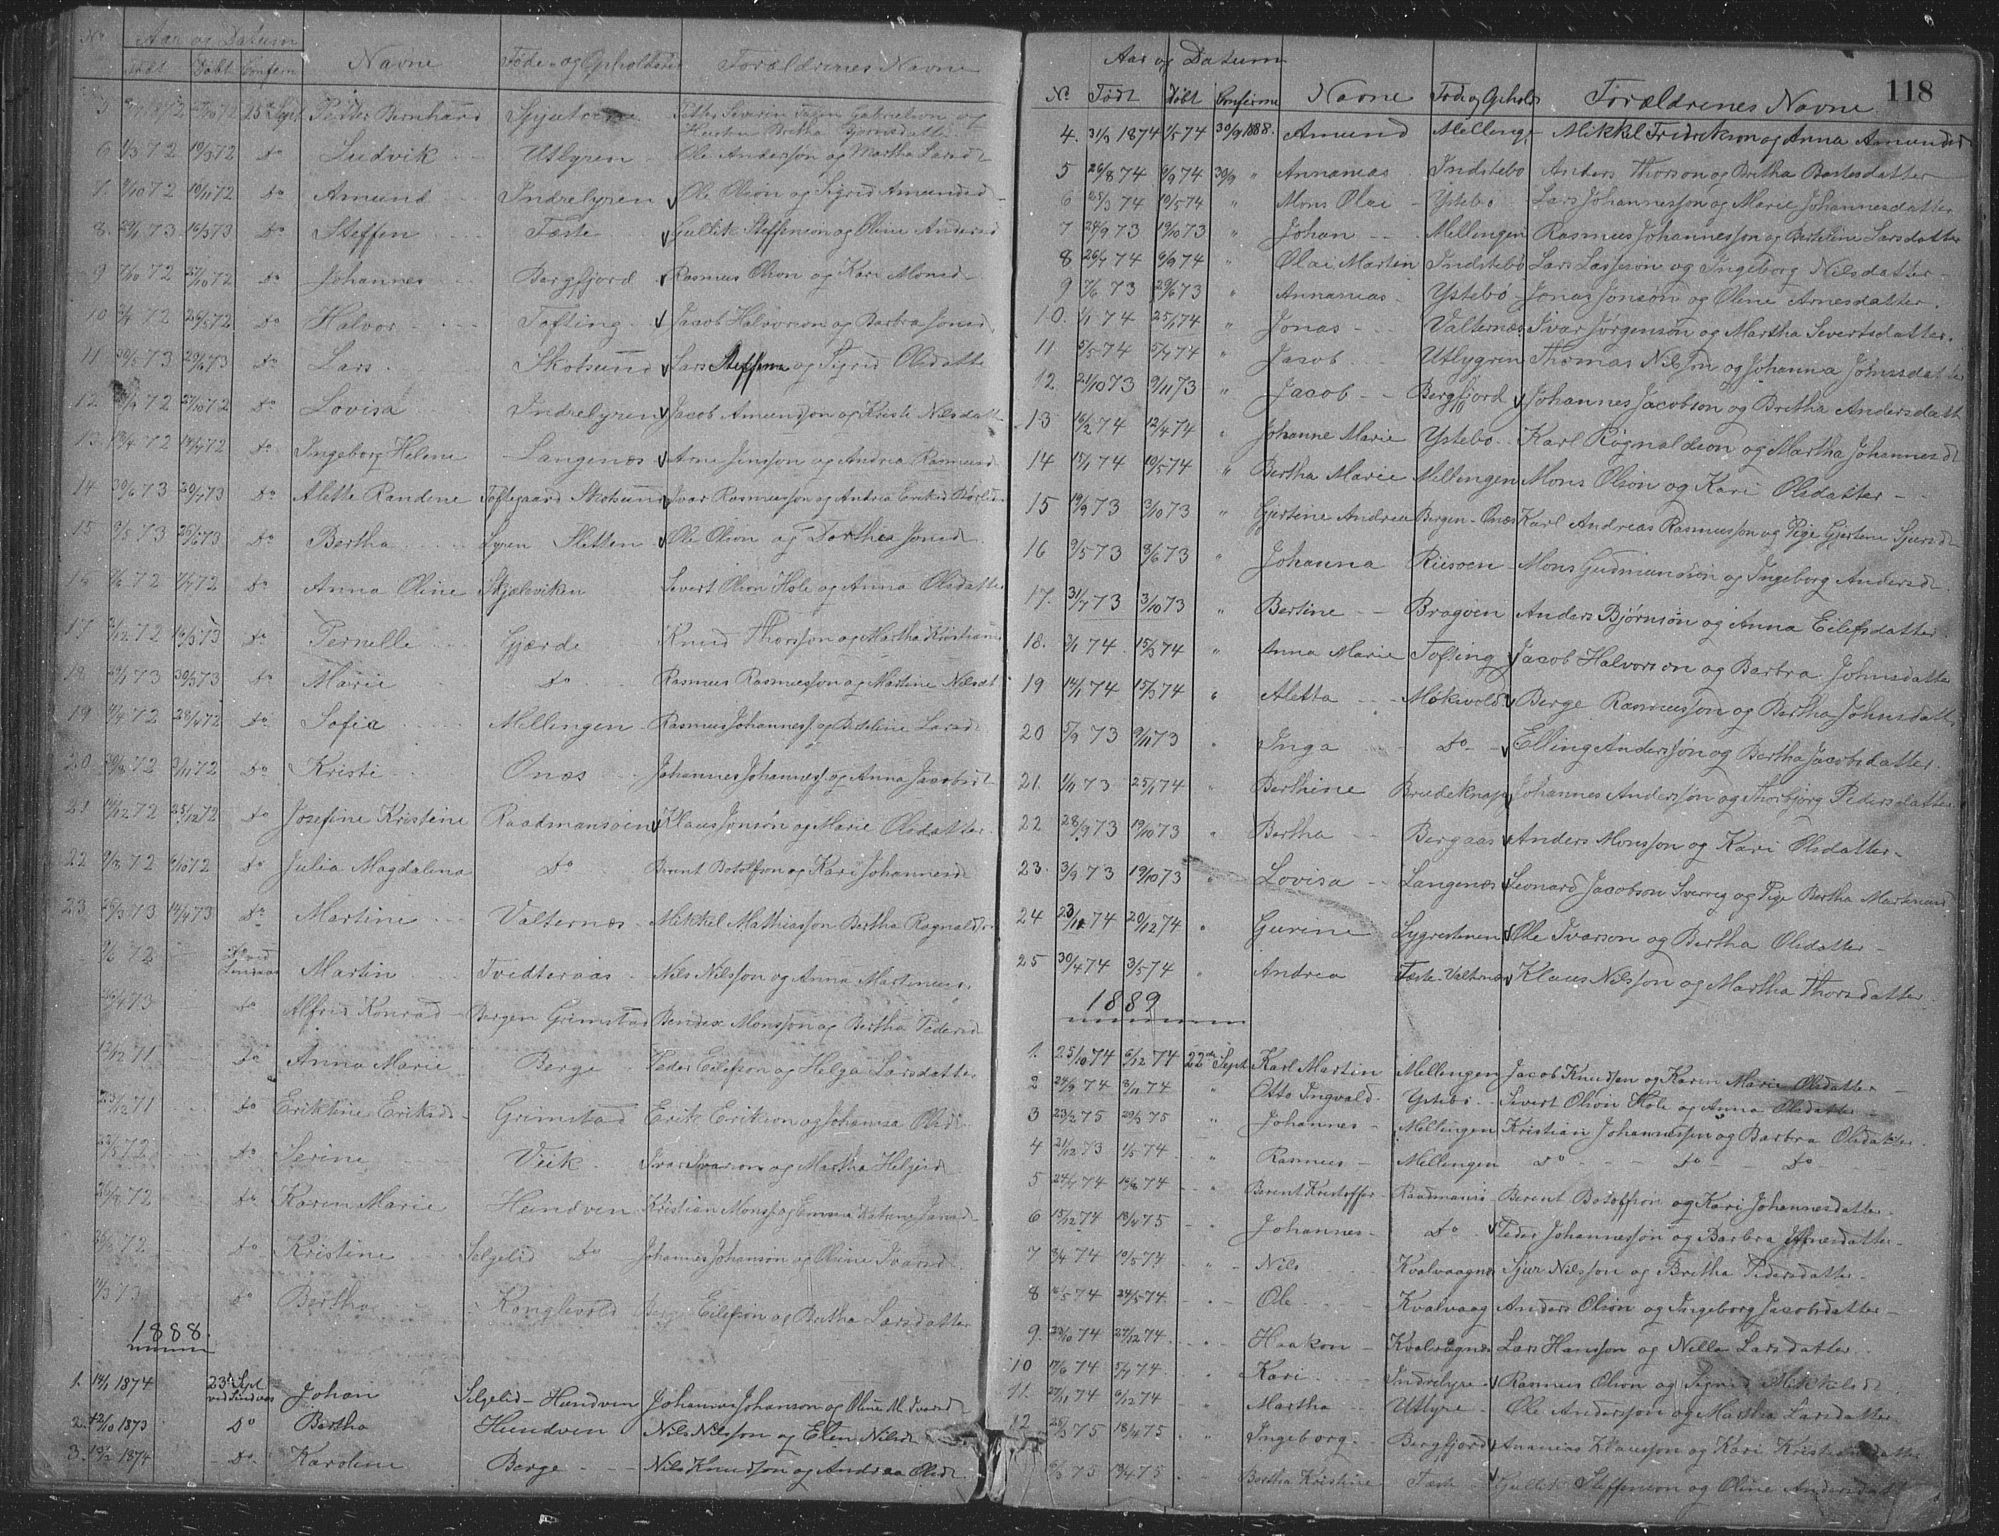 No
Aar og Datum
Födt Döbt Confirm
Navne
Föde- og Opholdsted
Forældrenes Navne
5 72 27/10 72 25de Sept Petter Bernhard
Kirsten Bretha Gjørnsdatter
6 1/3 72 19/5 72 do Ludvik Utlyren Ole Andersøn og Martha Larsd
7 10 72 10/11 72 do Amund Indrelyren Ole Olson og Sigrid Amundsd
8 29/1 73 16/3 73 do Steffen Tæste Gullik Steffenson og Oline Andersd
9 7/10 72 27/10 72 do Johannes Bergfjord Rasmus Olson og Kari Monsd
10 72 26/5 72 do Halvor Tofting Jacob Halvorson og Barbra Jonsd
11 30/5 73 29/6 73 do Lars Skolsund Lars Steffensen og Sigrid Olsdatter
12 72 27/10 72 do Lovisa Indrelyren Jacob Amundson og Kriste Nilsdatt
13 13/4 72 14/4 72 do Ingeborg Helene Langenæs Arne Jenson og Andrea Rasmusd
14 30/6 73 20/7 73 do Alette Randene Toftegaard Skolsund Ivar Rasmusson og Andrea Eriksd
15 9/5 73 25/6 73 do Bertha Lyren Sletten Ole Olson og Dorthea Jonsd
16 72 7/7 72 do Anna Oline Skjælviken Severt Olson Hole og Anna Olsdatter
17 12 72 16/3 73 do Pernelle Gjærde Knud Thorsson og Martha Kristians
18 29/1 73 30/3 73 do Marie do Rasmus Rasmusson og Martine Nilsdt
19 72 28/4 72 do Sofia Mellingen Rasmus Johannesson og Berteline Larsd
20 29/9 72 3/11 72 do Kristi Onæs Johannes Johannesson og Anna Jacobsd
21 14/12 72 25/12 72 do Josefine Kristine Raadmansøen Klaus Jonsøn og Marie Olsdatter
22 9/8 72 6/10 72 do Julia Magdalena do Berent Botolfson og Kari Johannesd
23 26/3 73 14/4 73 do Martine Valternæs Mikkel Mathiasson Bertha Rognaldsd
9/6 72 do ved Lindaas Martin Tvedteraas Nils Nilsson og Anna Martinusd
4 73 do Alfrid Konrad Bergen Grimstad Bendix Monsson og Bertha Pedersd
12/12 71 do Anna Marie Berge Peder Eilefson og Helga Larsdatter
23/12 71 do Eriktine Eriksd Grimstad Erik Erikson og Johanna Olsd
23/5 72 do Serine Veik Ivar Ivarson og Martha Helgesd
26/9 72 do Karen Marie Hundven Kristian Monss og Emma Katrine Jansd
72 do Kristine Selgelid do Johannes Johanson og Oline Ivarsd
14/3 73 do Bertha Konglevold Eilefson og Bertha Larsdatter
1888.
1. 14/1 1874 23de Sept ved Lindaas Johan Selgelid - Hundven Johannes Johanson og Oline M. Ivarsd
2. 12/10 1873 do Bertha Hundven Nils Nilsson og Elen Nilsd
3. 19/2 1874 do Karoline Berge Nils Knudson og Andrea Olsd

118
Aar og Datum
No Födt Döbt Confirme Navne Föde og Opholds Forældrenes Navne
4. 31/3 1874 1/5 74 30/9 1888. Amund Mellinge Mikkel Fredrikson og Anna Amundsd
5 26/8 74 6/9 74 30/9 " Annanias Indstebø Anders Thorson og Bretha Bertesdatter
6 25/3 74 10/5 74 " Mons Olai Ystebø Lars Johannesson og Marie Johannesdatter
7 24/9 73 19/10 73 " Johan Mellingen Rasmus Johannesson og Berteline Larsdatter
8 26/7 74 6/9 74 " Olai Marten Indstebø Lars Lasseson og Ingeborg Nilsdatter
9 7/6 73 29/6 73 " Annanias Ystebø Jonas Jonson og Oline Arnesdatter
10. 1/1 74 25/1 74 " Jonas Valternæs Ivar Jørgensøn og Martha Severtsdatter
11 5/5 74 5/7 74 " Jacob Utlygren Thomas Nilson og Johanna Johnsdatter
12. 21/10 73 9/11 73 " Jacob Bergfjord Johannes Jacobson og Bretha Andersdatt
13 16/2 74 12/4 74 " Johanne Marie Ystebø Karl Rognaldson og Martha Johannesd
14 17/1 74 10/5 74 " Bertha Marie Mellingen Mons Olson og Kari Olsdatter
15 19/9 73 3/10 73 " Gjertine Andrea Bergen - Onæs Karl Andreas Rasmusson og Pige Gjertine Sjursd
16 9/5 73 8/6 73 " Johanna Riisøen Mons Gudmundson og Ingeborg Andersd
17. 31/7 73 3/10 73 " Bertine Bragøen Anders Bjørnson og Anna Eilefsdatter
18. 2/1 74 15/3 74 " Anna Marie Tofting Jacob Halvorson og Barbra Johnsdatter
19 14/1 74 15/3 74 " Aletta Mokevold Berge Rasmusson og Bertha Johnsdatt
20 5/9 73 9/11 73 " Inga do Elling Anderssøn og Bertha Jacobsdatter
21. 1/11 73 25/1 74 " Berthine Brudeknap Johannes Anderssøn og Thorbjørg Pedersdatter
22 28/9 73 19/10 73 " Bertha Bergaas Anders Monsson og Kari Olsdatter
23. 3/9 73 19/10 73 " Lovisa Langenæs Leonard Jacobson Sverrig og Pige Bertha Martinusd
24 23/11 74 20/12 74 " Gurine Lygrestenen Ole Ivarson og Bertha Olsdatter
25 30/4 74 3/5 74 " Andrea Tæste - Valternæs Klaus Nilsson og Martha Thorsdatter
1889
1. 25/10 74 6/12 74 22de Sept Karl Martin Mellingen Jacob Knudson og Karen Marie Olsdatter
2 24/9 74 8/11 74 " Otto Ingvald Ystebø Severt Olson Hole og Anna Olsdatter
3 23/2 75 29/3 75 " Johannes Mellingen Kristian Johannesson og Barbra Olsdatter
4 21/12 73 1/5 74 " Rasmus Mellingen do do do
5 24/7 74 74 " Berent Kristoffer Raadmansø Berent Botolfson og Kari Johannesdatter
6 15/12 74 18/4 75 " Johannes do Peder Johannesson og Barbra Arnesdatter
7 8/4 74 10/5 74 " Nils Kvalvaagnes Sjur Nilsson og Bretha Pedersdatter
8 74 24/5 74 " Ole Kvalvaag Anders Olson og Ingeborg Jacobsdatter
9. 29/10 74 27/12 74 " Haakon Kvalvagnes Lars Hansson og Nille Larsdatter
10 17/6 74 5/7 74 " Kari Indrelyre Rasmus Olson og Sigrid Mikkelsd
11. 27/11 74 6/12 74 " Martha Utlyre Ole Andersson og Martha Larsdatter
12 25/3 75 18/4 75 " Ingeborg Bergfjord Ananias Klausson og Kari Kristensdatter
75 4 75 Bertha Kristine Tæste Gullik Steffenson og Oline Andersdatter